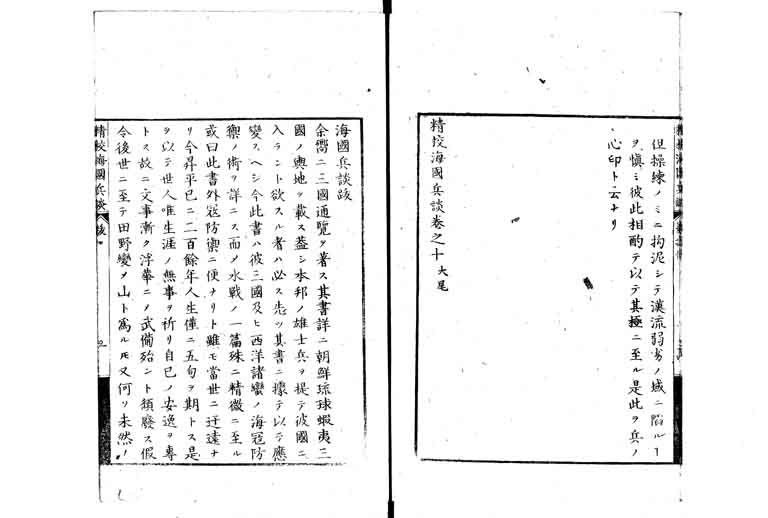 但操練ノミニ拘泥シテ漢流弱劣ノ域ニ陷ルヿ
ヲ慎ミ彼此相酌テ以テ其極ニ至ル是此ヲ兵ノ
心印ト云ナリ
精挍海國兵談卷之十大尾
海國兵談跋
余嚮ニ三國通覧ヲ著ス其書詳ニ朝鮮琉球蝦夷三
國ノ輿地ヲ載ス葢シ本邦ノ雄士兵ヲ提テ彼國ニ
入ラント欲スル者ハ必ス先ツ其書ニ據テ以テ應
變スヘシ今此書ハ彼三國及ヒ西洋諸蠻ノ海寇防
禦ノ術ヲ詳ニス而メ水戰ノ一篇殊ニ精微ニ至ル
或曰此書外寇防禦ニ便ナリト雖モ當世ニ迂遠ナ
リ今昇平已ニ二百餘年人生僅ニ五旬ヲ期トス是
ヲ以テ世人唯生涯ノ無事ヲ祈リ自己ノ安逸ヲ專
トス故ニ文事漸ク浮華ニノ武備殆ント頽廢ス假
令後世ニ至テ田野變メ山ト爲ルモ又何ソ未然ノ
精挍海國兵談 跋